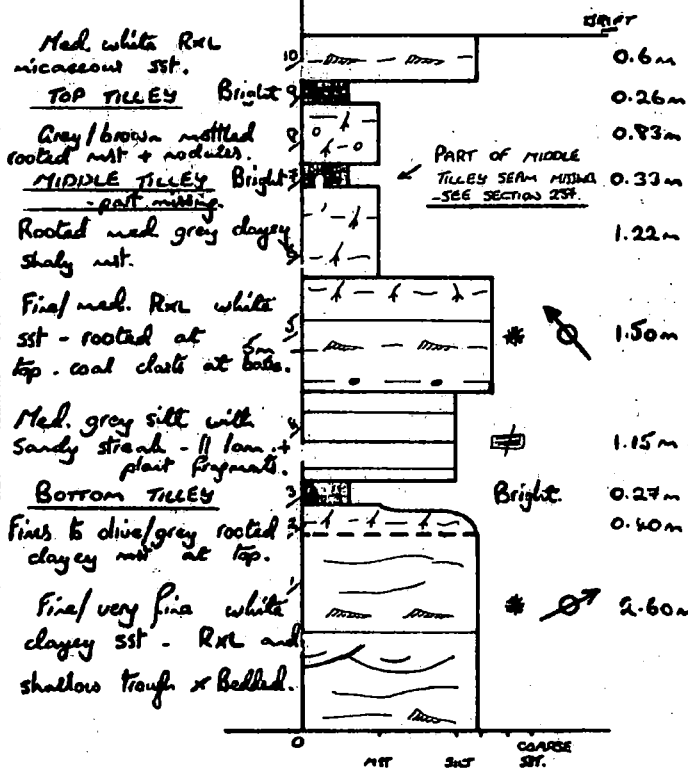 DRIFT
Med. white RXL
micaceous sst.
10
0.6m
TOP TILLEY Bright 9
0.26m
Grey/brown mottled
rooted mst + nodules.
8
0.83m
MIDDLE TILLEY Bright 7
- part missing.
PART OF MIDDLE
TILLEY SEAM MISSING
-SEE SECTION 257.
0.33m
Rooted med grey clayey
shaly mst.
6
1.22m
Fine/med. RXL white
sst - rooted at
top - coal clasts at base.
5
5m
1.50m
Med. grey silt with
Sandy streak - || lam. +
plant fragments.
4
1.15m
BOTTOM TILLEY
3
Bright.
0.27m
Fines to olive/grey rooted
clayey mst at top.
2
0.40m
Fine/very fine white
clayey sst - RXL and
shallow trough x Bedded.
1
2.60m
0
MST SILT COARSE
SST.